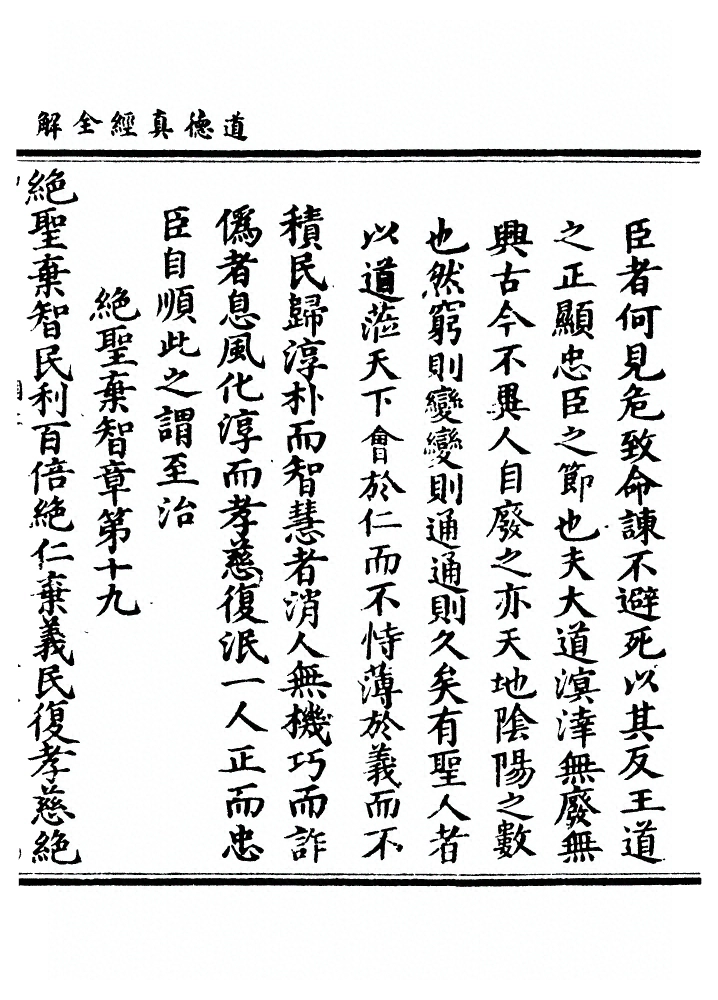 道德真經全解
臣者何見危致命諫不避死以其反王道
之正顯忠臣之節也夫大道溟涬無廢無
興古今不異人自廢之亦天地陰陽之數
也然窮則變變則通通則久矣有聖人者
以道蒞天下會於仁而不恃薄於義而不
積民歸淳朴而智慧者消人無機巧而詐
僞者息風化淳而孝慈復泯一人正而忠
臣自順此之謂至治
絕聖棄智章第十九
絕聖棄智民利百倍絕仁棄義民復孝慈絕